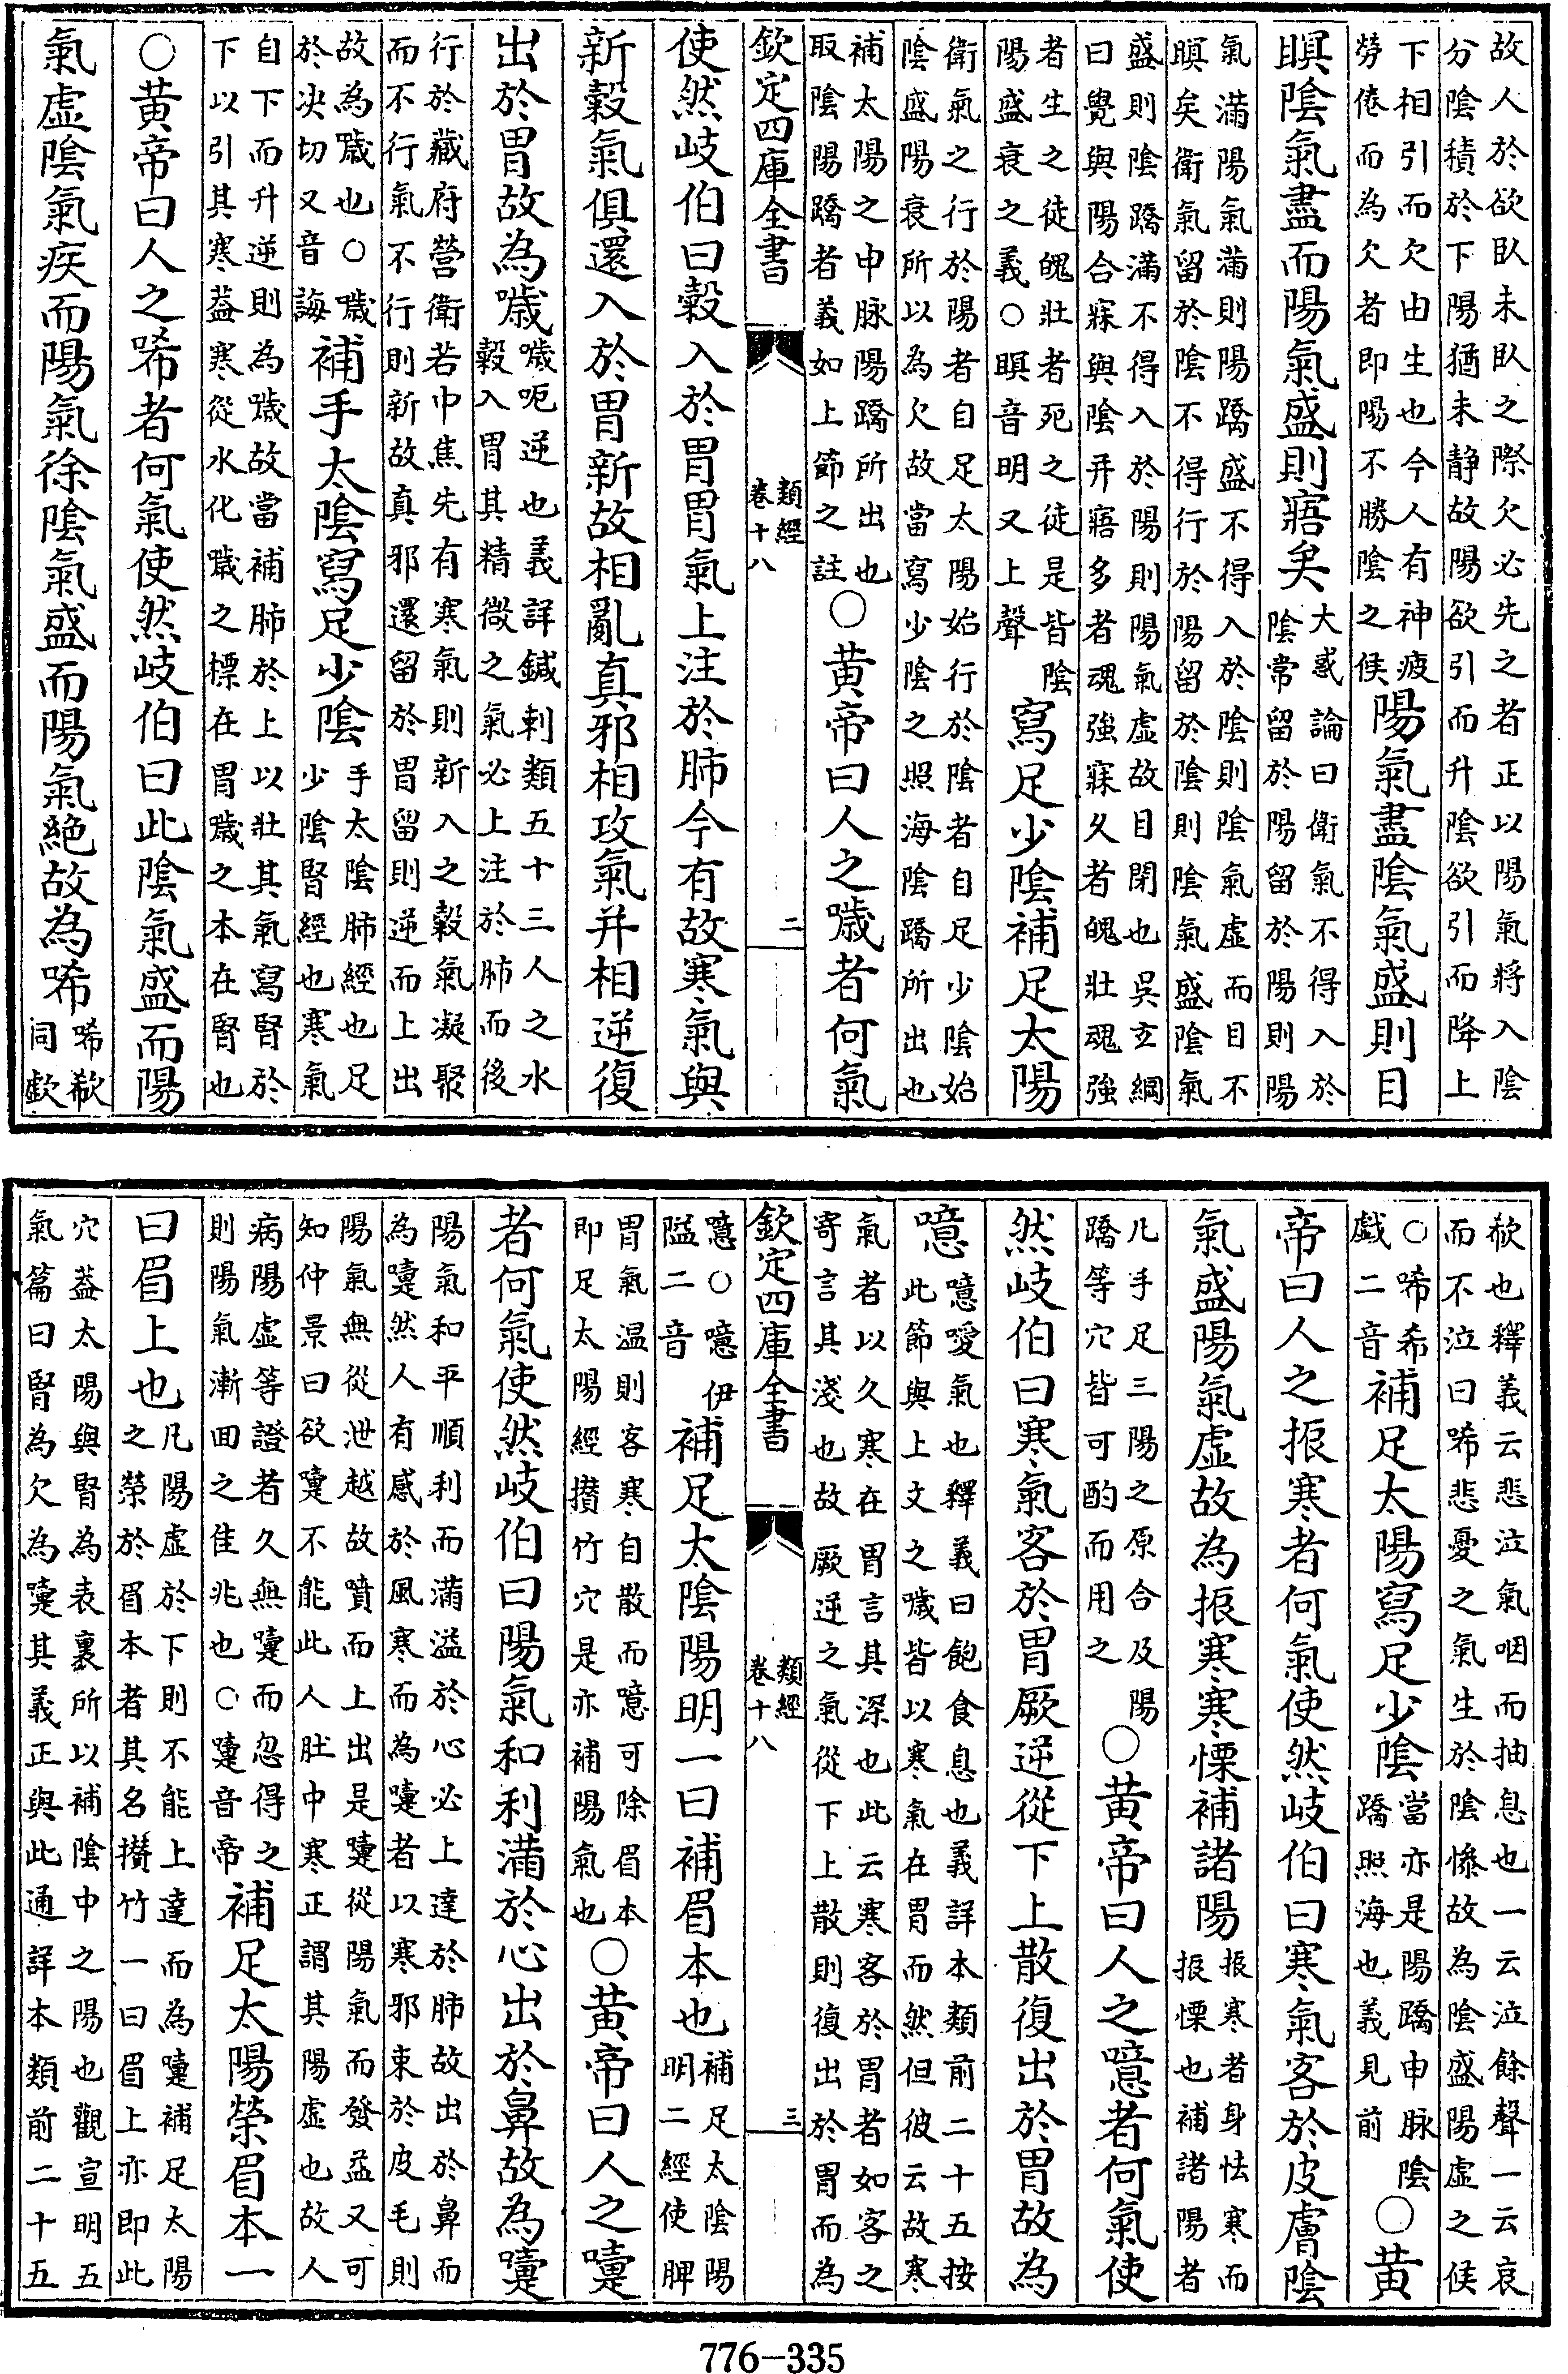 故人於欲臥未臥之際欠必先之者正以陽氣將入陰
分陰積於下陽猶未静故陽欲引而升陰欲引而降上
下相引而欠由生也今人有神疲
勞倦而為欠者即陽不勝陰之候
陽氣盡陰氣盛則目
瞑陰氣盡而陽氣盛則寤矣
大惑論曰衛氣不得入於
陰常留於陽留於陽則陽
氣滿陽氣滿則陽蹻盛不得入於陰則陰氣虛而目不
瞑矣衛氣留於陰不得行於陽留於陰則陰氣盛陰氣
盛則陰蹻滿不得入於陽則陽氣虛故目閉也吳玄綱
曰覺與陽合寐與陰并寤多者魂強寐久者魄壯魂強
者生之徒魄壯者死之徒是皆陰
陽盛衰之義○瞑音明又上聲
寫足少陰補足太陽
衛氣之行於陽者自足太陽始行於陰者自足少陰始
陰盛陽衰所以為欠故當寫少陰之照海陰蹻所出也
補太陽之申脉陽蹻所出也
取陰陽蹻者義如上節之註
○黄帝曰人之噦者何氣
欽定四庫全書
類經
卷十八
二
使然岐伯曰穀入於胃胃氣上注於肺今有故寒氣與
新穀氣俱還入於胃新故相亂真邪相攻氣并相逆復
出於胃故為噦
噦呃逆也義詳鍼刺類五十三人之水
穀入胃其精微之氣必上注於肺而後
行於藏府營衛若中焦先有寒氣則新入之穀氣凝聚
而不行氣不行則新故真邪還留於胃留則逆而上出
故為噦也○噦
於决切又音誨
補手太陰寫足少陰
手太陰肺經也足
少陰腎經也寒氣
自下而升逆則為噦故當補肺於上以壯其氣寫腎於
下以引其寒葢寒從水化噦之標在胃噦之本在腎也
○黄帝曰人之唏者何氣使然岐伯曰此陰氣盛而陽
氣虛陰氣疾而陽氣徐陰氣盛而陽氣絶故為唏
唏欷
同歔
欷也釋義云悲泣氣咽而抽息也一云泣餘聲一云哀
而不泣曰唏悲憂之氣生於陰慘故為陰盛陽虛之候
○唏希
戯二音
補足太陽寫足少陰
當亦是陽蹻申脉陰
蹻照海也義見前
○黄
帝曰人之振寒者何氣使然岐伯曰寒氣客於皮膚陰
氣盛陽氣虛故為振寒寒慄補諸陽
振寒者身怯寒而
振慄也補諸陽者
凡手足三陽之原合及陽
蹻等穴皆可酌而用之
○黄帝曰人之噫者何氣使
然岐伯曰寒氣客於胃厥逆從下上散復出於胃故為
噫
噫噯氣也釋義曰飽食息也義詳本類前二十五按
此節與上文之噦皆以寒氣在胃而然但彼云故寒
氣者以久寒在胃言其深也此云寒客於胃者如客之
寄言其淺也故厥逆之氣從下上散則復出於胃而為
欽定四庫全書
類經
卷十八
三
噫○噫伊
隘二音
補足太陰陽明一曰補眉本也
補足太陰陽
明二經使脾
胃氣温則客寒自散而噫可除眉本
即足太陽經攅竹穴是亦補陽氣也
○黄帝曰人之嚏
者何氣使然岐伯曰陽氣和利滿於心出於鼻故為嚏
陽氣和平順利而滿溢於心必上達於肺故出於鼻而
為嚏然人有感於風寒而為嚏者以寒邪束於皮毛則
陽氣無從泄越故噴而上出是嚏從陽氣而發益又可
知仲景曰欲嚏不能此人肚中寒正謂其陽虛也故人
病陽虛等證者久無嚏而忽得之
則陽氣漸囬之佳兆也○嚏音帝
補足太陽榮眉本一
曰眉上也
凡陽虛於下則不能上達而為嚏補足太陽
之榮於眉本者其名攅竹一曰眉上亦即此
穴葢太陽與腎為表裏所以補陰中之陽也觀宣明五
氣篇曰腎為欠為嚏其義正與此通詳本類前二十五
776-335